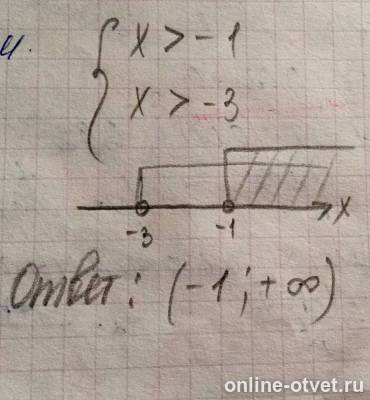 4.
x > -1
x > -3
-3 -1 x
Ответ: (-1; +∞)
online-otvet.ru